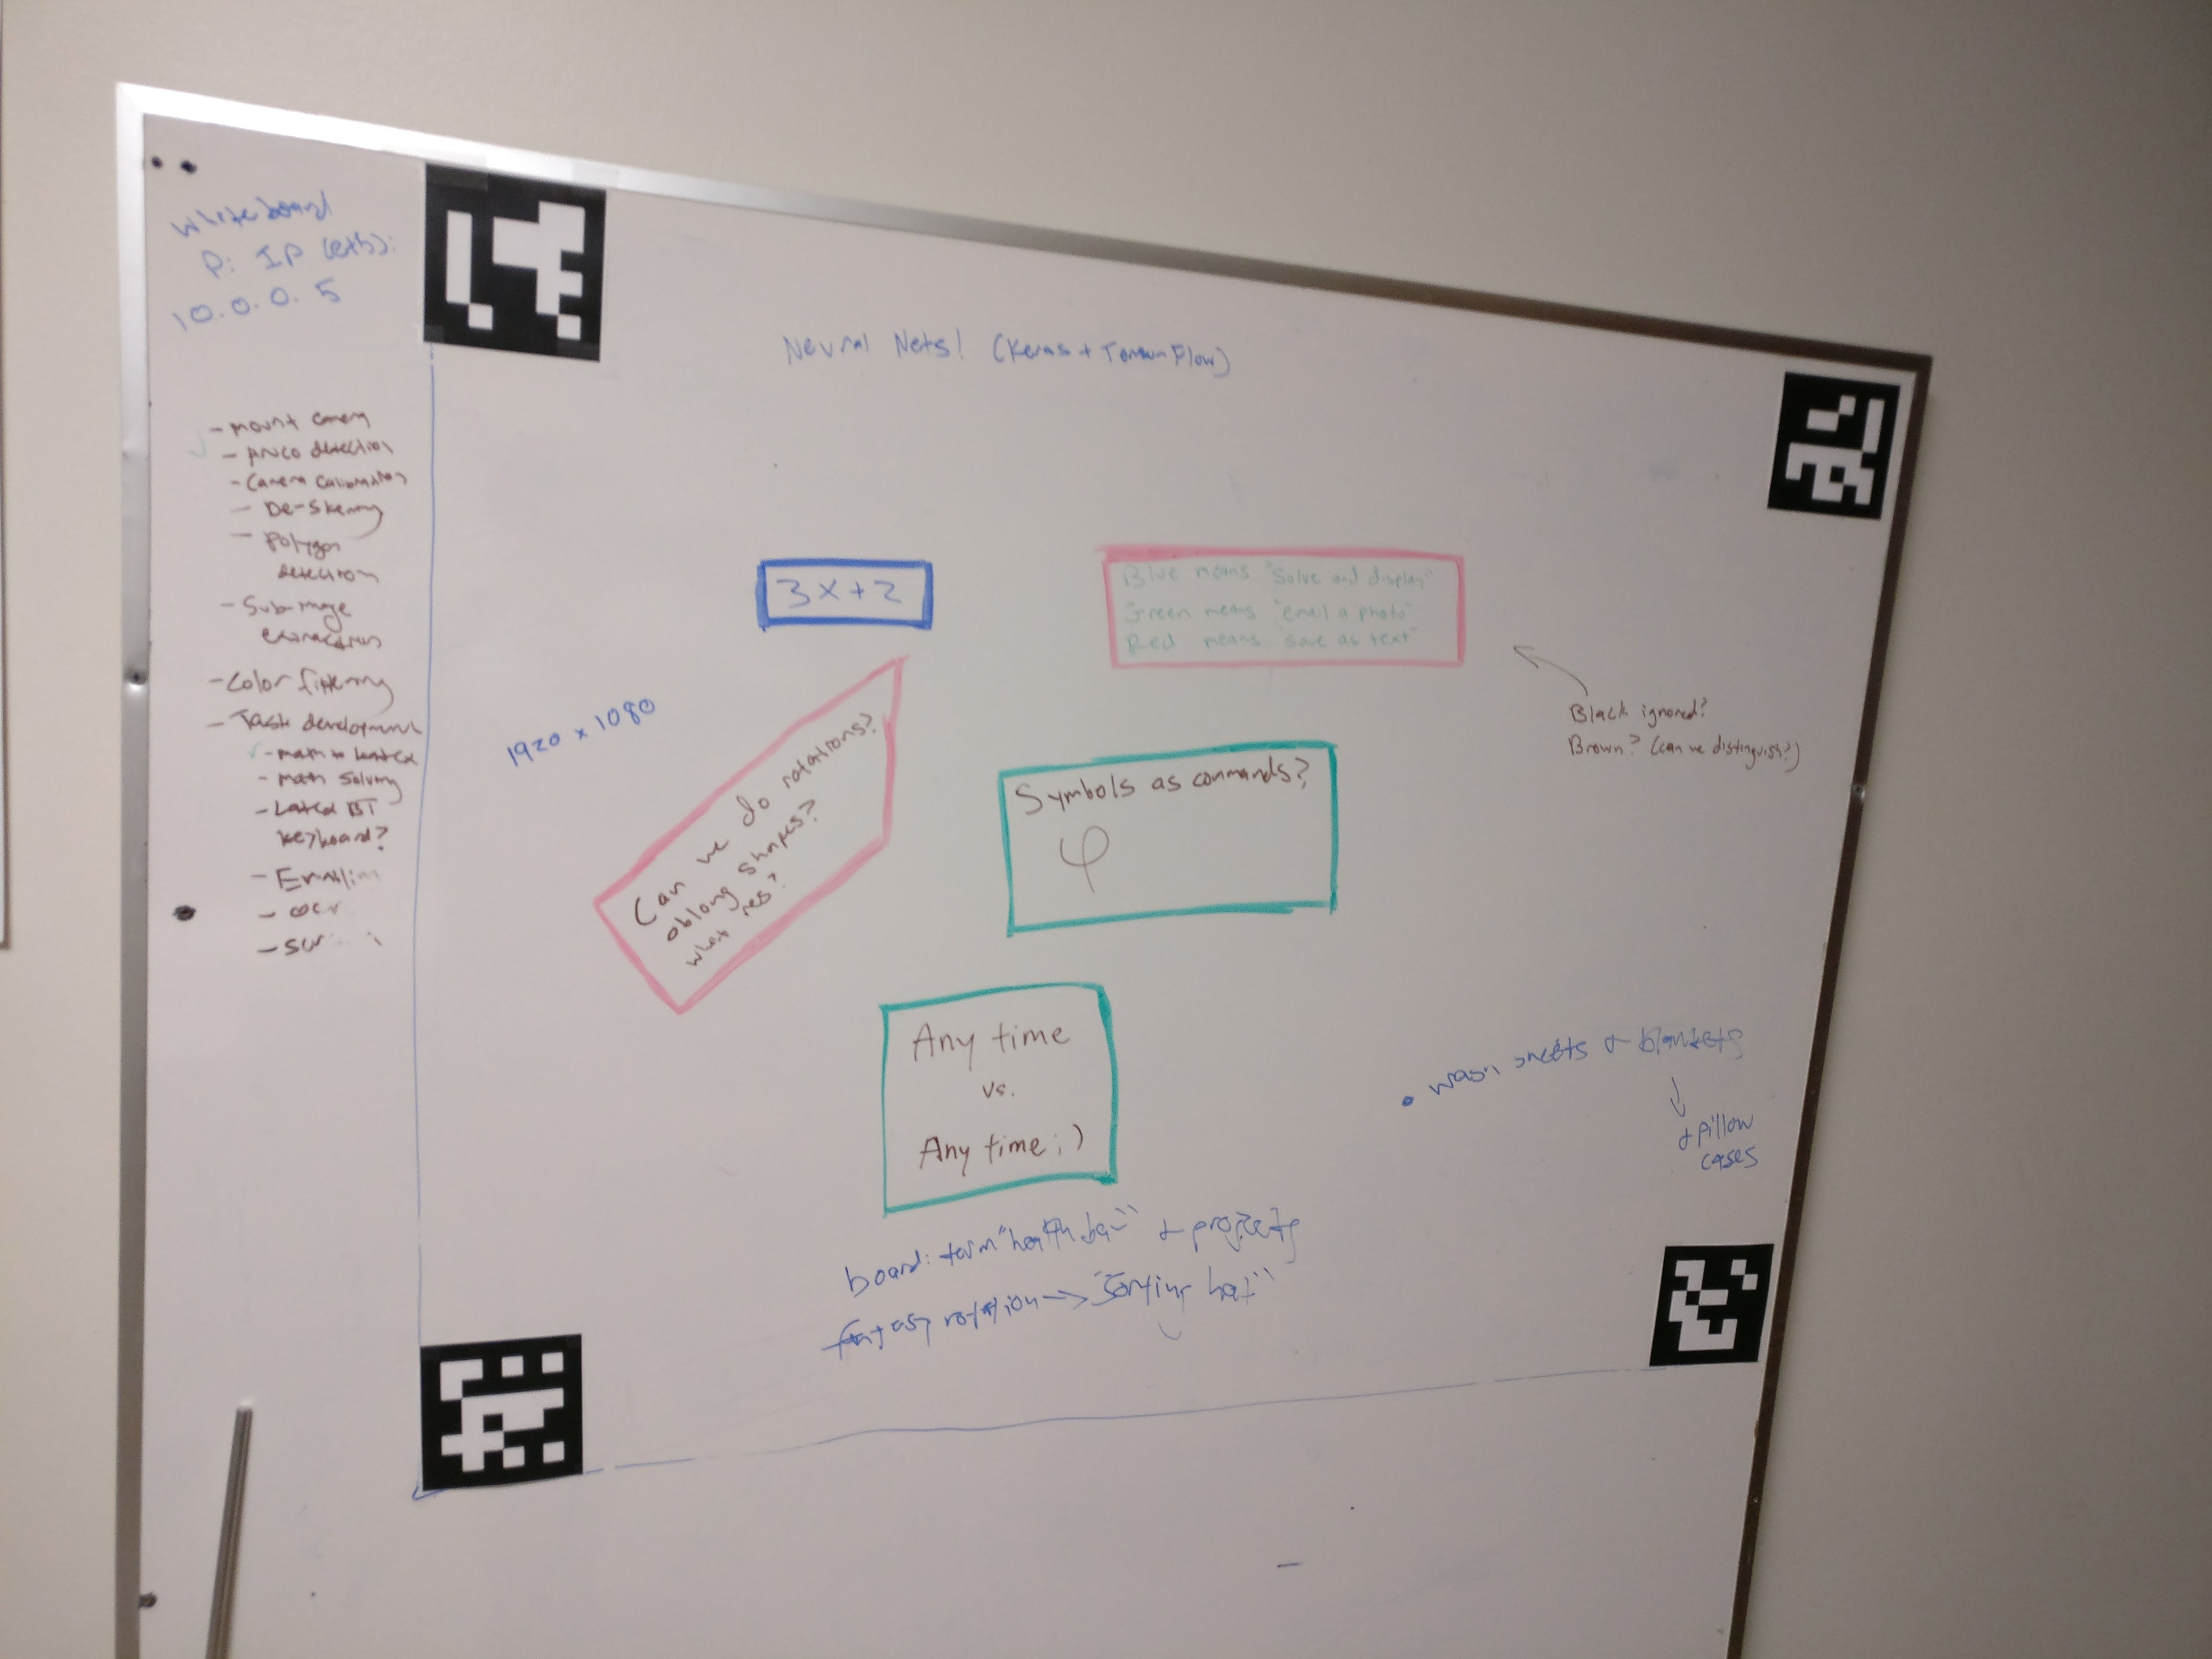 Whiteboard
Pi IP (eth):
10.0.0.5
- mount camera
- Aruco detection
- Camera Calibration
- De-skewing
- Polygon
detection
- Sub-image
extraction
- Color filtering
- Task development
- math to LaTeX
- math solving
- LaTeX BT
keyboard?
Neural Nets! (Keras +
3x+2
Blue means "Solve and display"
Green means "email a photo"
Red means "save as text"
Black ignored?
Brown? (can we distinguish?)
1920 x 1080
Can we do rotations?
oblong shapes?
what res?
Symbols as commands?
φ
Any time
vs.
Any time ;)
• wash sheets & blankets
& pillow
cases
board: "health bar" & projects
rotation -> "Sorting hat"